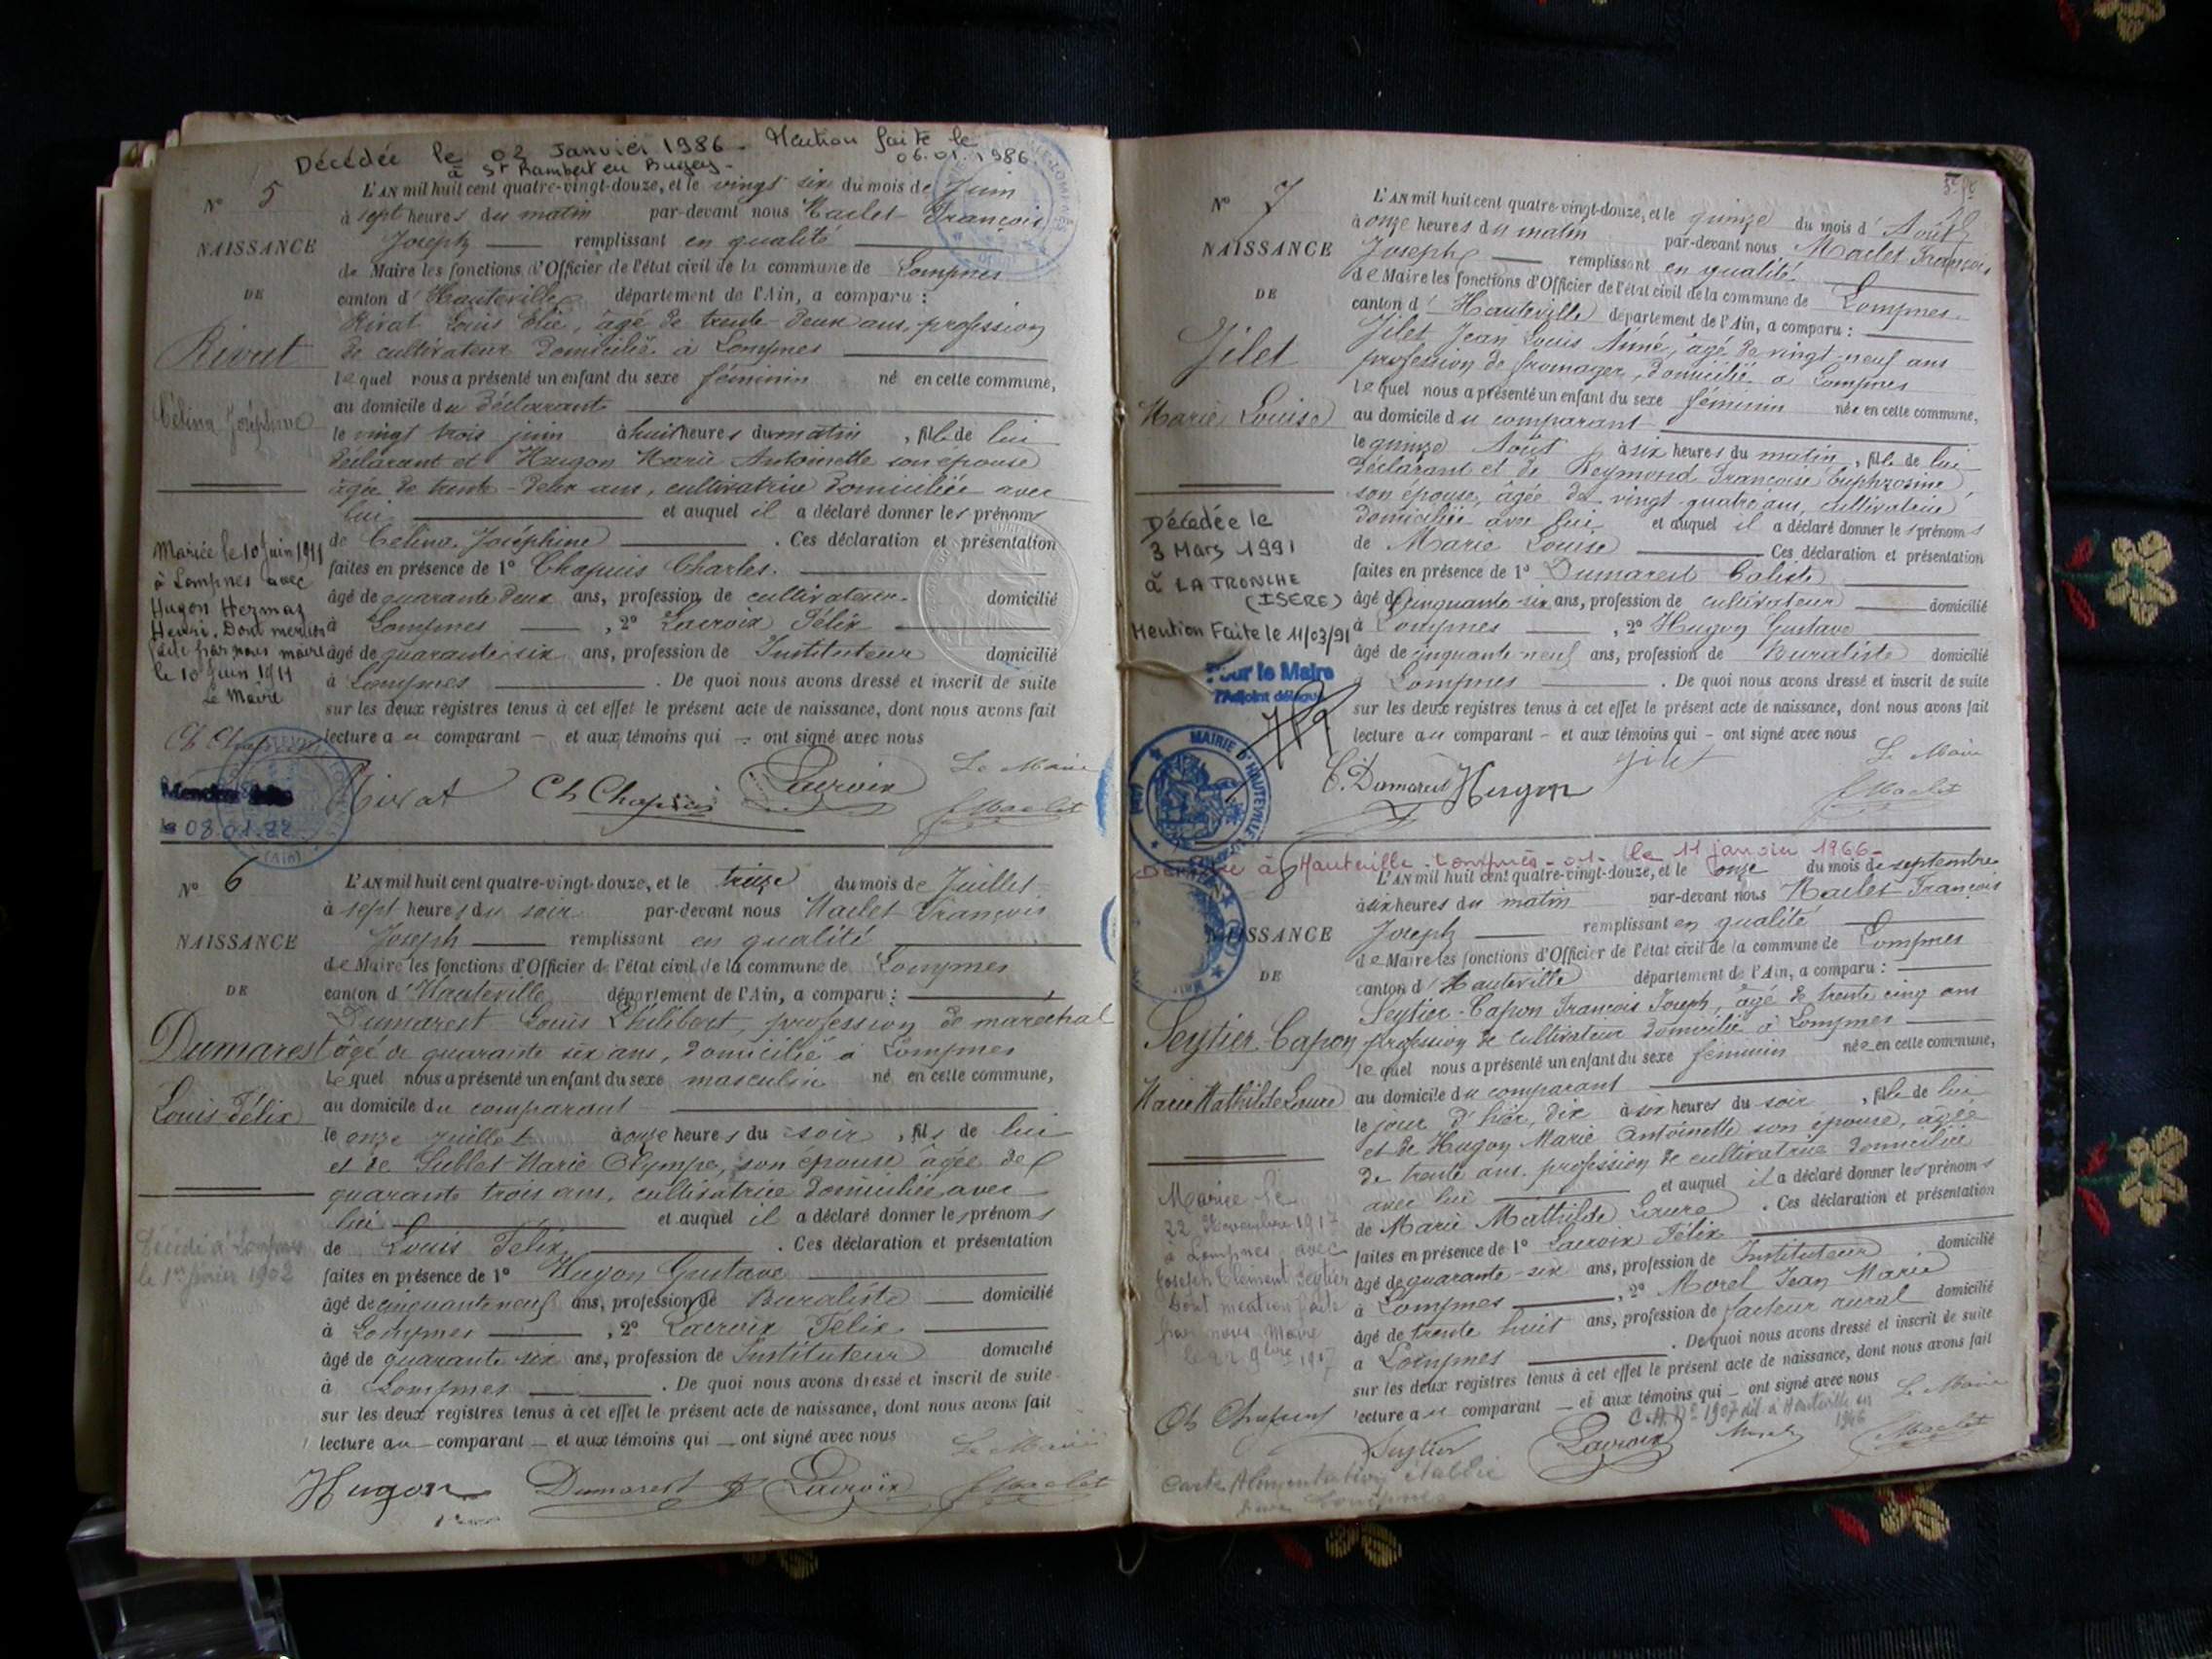 Décédée le 02 Janvier 1986 - Mention faite le
à St Rambert en Bugey - 06.01.1986
N° 5
NAISSANCE
DE
Rivat
Célina Joséphine
Mariée le 10 Juin 1911
à Lompnes avec
Hugon Hermaz
Henri. Dont mention
faite par nous maire
le 10 Juin 1911
Le Maire
Ch Chapuis
L'AN mil huit cent quatre-vingt-douze, et le vingt six du mois de Juin
à sept heures du matin par-devant nous Maclet François
Joseph remplissant en qualité
de Maire les fonctions d'Officier de l'état civil de la commune de Lompnes
canton d'Hauteville département de l'Ain, a comparu :
Rivat Louis Elie, âgé de trente-deux ans, profession
de cultivateur domicilié à Lompnes
lequel nous a présenté un enfant du sexe féminin né en cette commune,
au domicile du déclarant
le vingt trois juin à huit heures du matin, fille de lui
déclarant et Hugon Marie Antoinette son épouse
âgée de trente-deux ans, cultivatrice domiciliée avec
lui et auquel il a déclaré donner les prénoms
de Célina Joséphine. Ces déclaration et présentation
faites en présence de 1° Chapuis Charles.
âgé de quarante deux ans, profession de cultivateur domicilié
à Lompnes, 2° Lacroix Félix
âgé de quarante-six ans, profession de Instituteur domicilié
à Lompnes. De quoi nous avons dressé et inscrit de suite
sur les deux registres tenus à cet effet le présent acte de naissance, dont nous avons fait
lecture au comparant - et aux témoins qui - ont signé avec nous
Le Maire
Rivat Ch Chapuis Lacroix Maclet
N° 6
NAISSANCE
DE
Dumarest
Louis Félix
Décédé à Lompnes
le 1er février 1902
L'AN mil huit cent quatre-vingt-douze, et le treize du mois de Juillet
à sept heures du soir par-devant nous Maclet François
Joseph remplissant en qualité
de Maire les fonctions d'Officier de l'état civil de la commune de Lompnes
canton d'Hauteville département de l'Ain, a comparu :
Dumarest Louis Philibert, profession de maréchal
âgé de quarante six ans, domicilié à Lompnes
lequel nous a présenté un enfant du sexe masculin né en cette commune,
au domicile du comparant
le onze juillet à onze heures du soir, fils de lui
et de Gublet Marie Olympe, son épouse âgée de
quarante trois ans, cultivatrice domiciliée avec
lui et auquel il a déclaré donner les prénoms
de Louis Félix. Ces déclaration et présentation
faites en présence de 1° Hugon Gustave
âgé de cinquante neuf ans, profession de Buraliste domicilié
à Lompnes, 2° Lacroix Félix
âgé de quarante six ans, profession de Instituteur domicilié
à Lompnes. De quoi nous avons dressé et inscrit de suite
sur les deux registres tenus à cet effet le présent acte de naissance, dont nous avons fait
lecture au comparant - et aux témoins qui - ont signé avec nous
Le Maire
Hugon Dumarest Lacroix Maclet
N° 7
NAISSANCE
DE
Jilet
Marie Louise
Décédée le
3 Mars 1991
à LA TRONCHE
(ISERE)
Mention Faite le 11/03/91
Pour le Maire
l'Adjoint délégué
MAIRIE D'HAUTEVILLE
L'AN mil huit cent quatre-vingt-douze, et le quinze du mois d'Août
à onze heures du matin par-devant nous Maclet François
Joseph remplissant en qualité
de Maire les fonctions d'Officier de l'état civil de la commune de Lompnes
canton d'Hauteville département de l'Ain, a comparu :
Jilet Jean Louis Aimé, âgé de vingt-neuf ans
profession de fromager, domicilié à Lompnes
lequel nous a présenté un enfant du sexe féminin née en cette commune,
au domicile du comparant
le quinze Août à six heures du matin, fille de lui
déclarant et de Reymond Françoise Euphrosine
son épouse, âgée de vingt-quatre ans, cultivatrice
domiciliée avec lui et auquel il a déclaré donner les prénoms
de Marie Louise Ces déclaration et présentation
faites en présence de 1° Dumarest Caliste
âgé de cinquante-six ans, profession de cultivateur domicilié
à Lompnes, 2° Hugon Gustave
âgé de cinquante-neuf ans, profession de Buraliste domicilié
à Lompnes. De quoi nous avons dressé et inscrit de suite
sur les deux registres tenus à cet effet le présent acte de naissance, dont nous avons fait
lecture au comparant - et aux témoins qui - ont signé avec nous
Le Maire
C. Dumarest Hugon Jilet Maclet
Décédée à Hauteville-Lompnes - 01 - le 11 janvier 1966 -
NAISSANCE
DE
Seytier-Capon
Marie Mathilde Laure
Mariée le
22 Novembre 1917
à Lompnes avec
Joseph Clément Seytier
Dont mention faite
par nous Maire
le 22 9bre 1917
Ch Chapuis
L'AN mil huit cent quatre-vingt-douze, et le onze du mois de septembre
à six heures du matin par-devant nous Maclet François
Joseph remplissant en qualité
de Maire les fonctions d'Officier de l'état civil de la commune de Lompnes
canton d'Hauteville département de l'Ain, a comparu :
Seytier-Capon François Joseph, âgé de trente cinq ans
profession de cultivateur domicilié à Lompnes
lequel nous a présenté un enfant du sexe féminin née en cette commune,
au domicile du comparant
le jour d'hier, dix à six heures du soir, fille de lui
et de Hugon Marie Antoinette son épouse, âgée
de trente ans. profession de cultivatrice domiciliée
avec lui et auquel il a déclaré donner les prénoms
de Marie Mathilde Laure. Ces déclaration et présentation
faites en présence de 1° Lacroix Félix
âgé de quarante-six ans, profession de Instituteur domicilié
à Lompnes, 2° Morel Jean Marie
âgé de trente huit ans, profession de facteur rural domicilié
à Lompnes. De quoi nous avons dressé et inscrit de suite
sur les deux registres tenus à cet effet le présent acte de naissance, dont nous avons fait
lecture au comparant - et aux témoins qui - ont signé avec nous
Le Maire
Seytier Lacroix Morel Maclet
Carte Alimentation établie